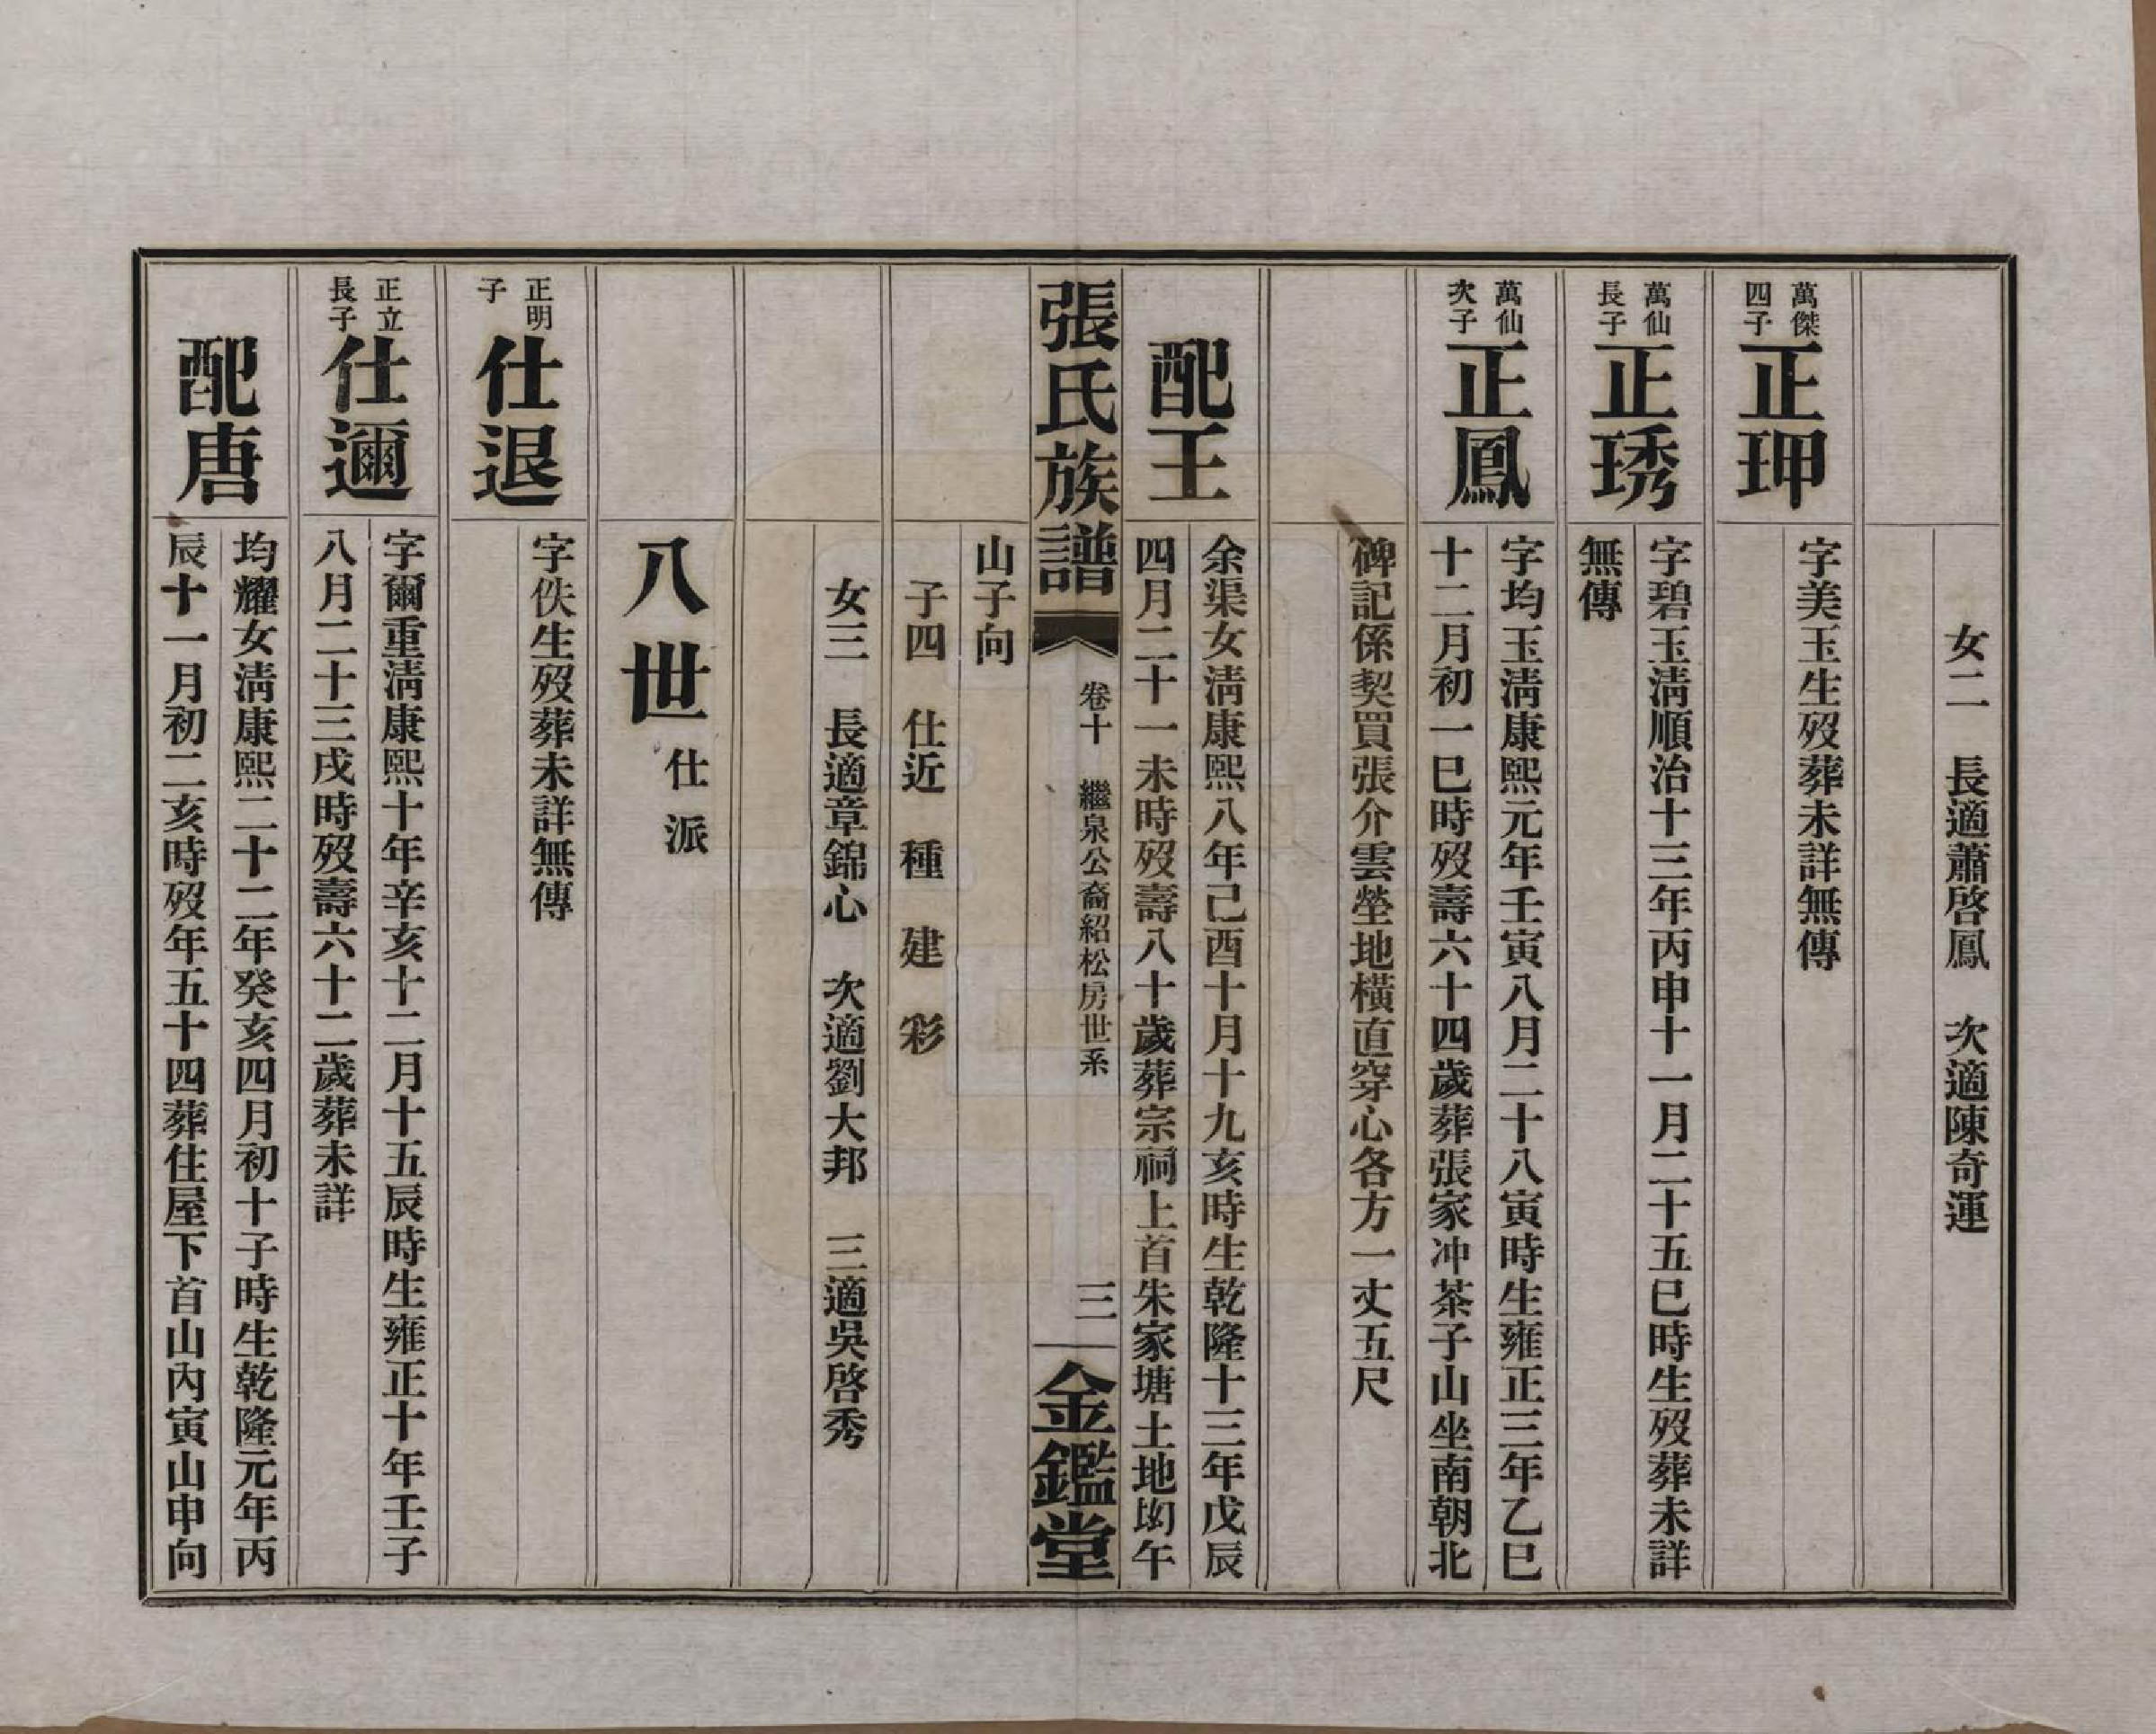 女二　長適蕭啓鳳　次適陳奇運
萬傑
四子
正玾
字美玉生歿葬未詳無傳
萬仙
長子
正琇
字碧玉淸順治十三年丙申十一月二十五巳時生歿葬未詳
無傳
萬仙
次子
正鳳
字均玉淸康熙元年壬寅八月二十八寅時生雍正三年乙巳
十二月初一巳時歿壽六十四歲葬張家冲茶子山坐南朝北
碑記係契買張介雲塋地橫直穿心各方一丈五尺
配王
余渠女淸康熙八年己酉十月十九亥時生乾隆十三年戊辰
四月二十一未時歿壽八十歲葬宗祠上首朱家塘土地㘭午
張氏族譜
卷十　繼泉公裔紹松房世系
三
金鑑堂
山子向
子四　仕近　種　建　彩
女三　長適章錦心　次適劉大邦　三適吳啓秀
八世
仕派
正明
子
仕退
字佚生歿葬未詳無傳
正立
長子
仕邇
字爾重淸康熙十年辛亥十二月十五辰時生雍正十年壬子
八月二十三戌時歿壽六十二歲葬未詳
配唐
均耀女淸康熙二十二年癸亥四月初十子時生乾隆元年丙
辰十一月初二亥時歿年五十四葬住屋下首山內寅山申向